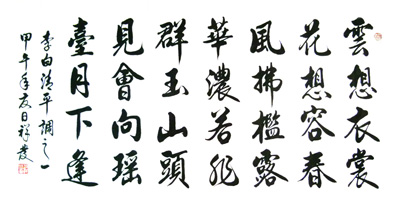 雲想衣裳
花想容春
風拂檻露
華濃若非
群玉山頭
見會向瑶
臺月下逢
李白清平調之一
甲午年友日祥慶